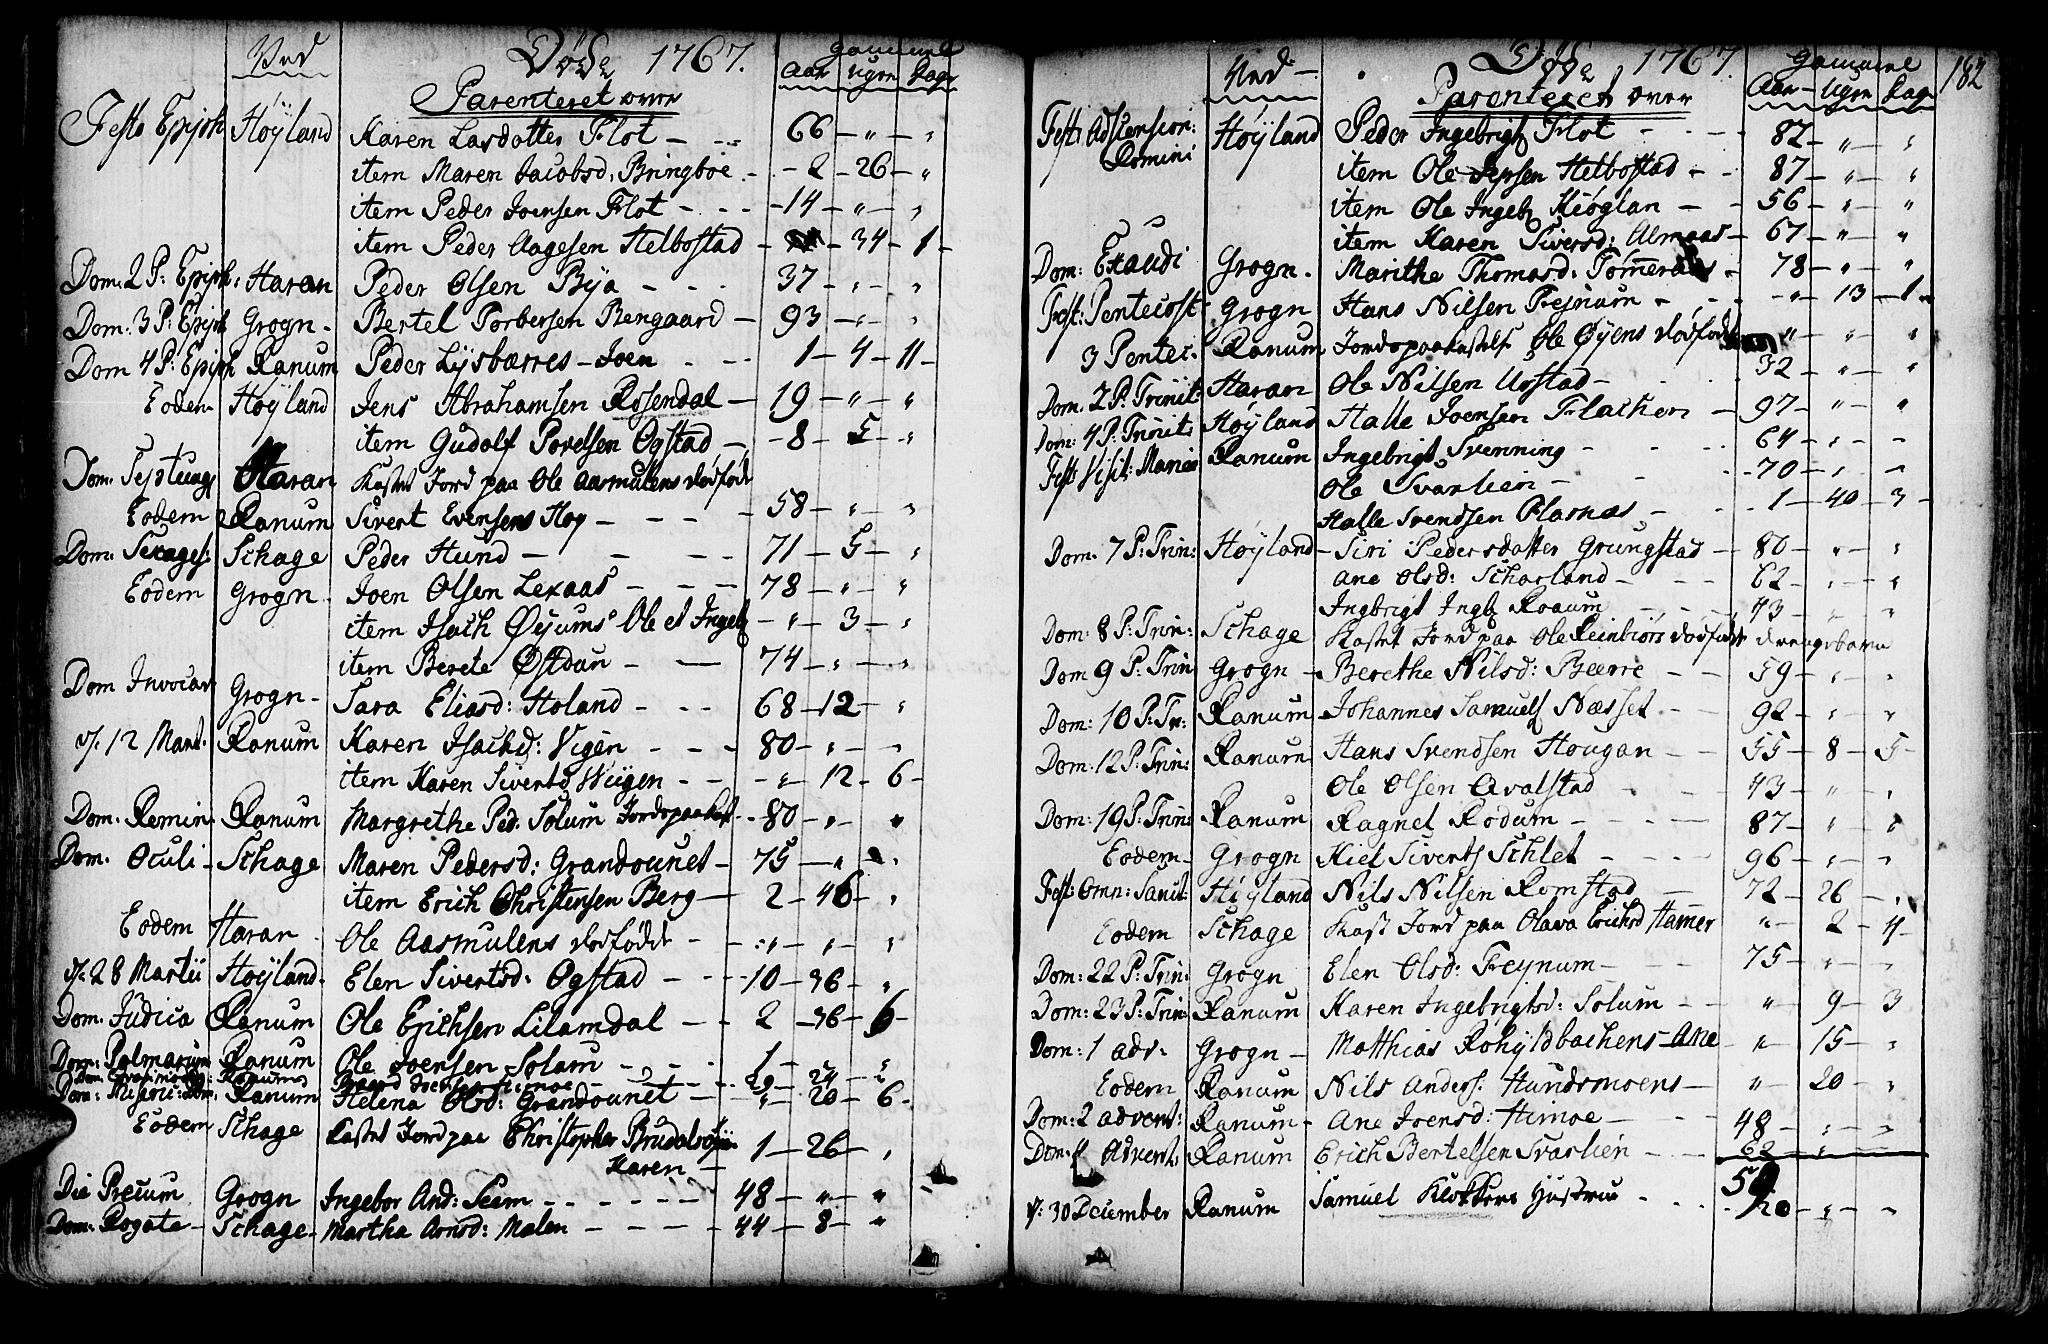 Ved Døde 1767. Gammel
Parenteret over Aar Ugen Dage
Festo Epiph Høyland Karen Larsdotter Flot 66 " "
item Maren Jacobsd: Bringboe 2 26 "
item Peder Joensen Flot 14 " "
item Peder Aagesen Helbostad 34 1
Dom: 2 P: Epiph: Haran Peder Olsen Bya 37 " "
Dom: 3 P: Epiph Grogn Bertel Torbersen Rengaard 93 " "
Dom 4 P: Epiph Ranum Peder Lysbærres Joen 1 4 11
Eodem Høyland Jens Abrahamsen Rosendal 19 " "
item Gudolf Povelsen Ogstad 8 5 "
Dom: Septuag Haran Kastet Jord paa Ole Aasmulens dødfødt
Eodem Ranum Sivert Evensens Hog 58 " "
Dom: Sexages: Schage Peder Hund 71 5 "
Eodem Grogn Joen Olsen Lexaas 78 " "
item Isach Øyums Ole et Ingeb " 3 "
item Berete Østdun 74 " "
Dom Invocav Grogn Sara Eliasd: Holand 68 12 "
d. 12 Mart. Ranum Karen Isachsd: Vigen 80 " "
item Karen Siverts Wiigen " 12 6
Dom: Remin Ranum Margrethe Ped: Solum Jordspaakast 80 " "
Dom: Oculi Schage Maren Pedersd: Grandounet 75 " "
item Erich Christensen Berg 2 46 "
Eodem Haran Ole Aasmulens dødfødt " " "
d. 28 Martii Høyland Elen Sivertsd: Ogstad 10 36 "
Dom: Judica Ranum Ole Erichsen Lilamdal 2 36 6
Dom: Palmarum Ranum Ole Joensen Solum 1 " "
Ranum Joensen Himoe 29 24 2
Dom: Miseric: Dom: Ranum Helena Olsd: Grandounet " 20 6
Eodem Schage Kastet Jord paa Christopher
Karen 1 26 "
Die Precum Grogn Ingebor And: Seem 48 " "
Dom: Rogate Schage Martha Arnsd: Malen 44 8 "
Ved Døde 1767 Gammel 182
Parenteret over Aar Ugen Dag
Fest: Adscension: Domini Høyland Peder Ingebrigts Flot 82 " "
item Ole Jepsen Helbostad 87 " "
item Ole Ingeb Kiøglan 56 " "
item Karen Siversd: Almaas 67 " "
Dom: Exaudi Grogn Marithe Thomasd: Tømeraas 78 " "
Fest: Pentecost Grogn Hans Nilsen Frejnum " 13 1
3 Pentec. Ranum Jordspaakastelse Ole Øyens dødfødt " " "
Dom: 2 P: Trinit: Haran Ole Nilsen Urstad 32 " "
Dom: 4 P: Trinit: Høyland Halle Joensen Flachen 97 " "
Fest Visit: Mariæ Ranum Ingebrigt Svenning 64 " "
Ole Svarlien 70 " "
Halle Svendsen Plasnas 1 40 3
Dom: 7 P: Trin: Høyland Siri Pedersdatter Grungstad 80 " "
Ane Olsd: Scharland 62 " "
Ingbrigt Ingb Roaum 43 " "
Dom: 8 P: Trin: Schage Kastet Jord paa Ole Reinbiørs dødfødt drengebarn
Dom 9 P: Trin Grogn Berethe Nilsd: Beerre 59 " "
Dom: 10 P: Tr: Ranum Johannes Samuels Næsset 92 " "
Dom: 12 P: Trin: Ranum Hans Svendsen Hougan 55 8 5
Ole Olsen Qvalstad 43 " "
Dom: 19 P: Trin: Ranum Ragnel Rodum 87 " "
Eodem Grogn Kiel Siverts Schlet 96 " "
Fest: Omn: Sanct: Høyland Nils Nilsen Romstad 72 26 "
Eodem Schage Kast Jord paa Olava Erichsd Hamer " 2 4
Dom: 22 P: Trin: Grogn Elen Olsd: Frejnum 75 " "
Dom: 23 P: Trin: Ranum Karen Ingebrigtsd: Solum " 9 3
Dom: 1 adv: Grogn Matthias Rohyldbachens Ane " 15 "
Eodem Ranum Nils Anders: Hundsmoens " 20 "
Dom: 2 advent: Ranum Ane Joensd: Himoe 48 " "
Dom: 4 Advent Ranum Erich Bertelsen Svarlien 62 " "
d: 30 December Ranum Samuel Klokkers Hustrue " "